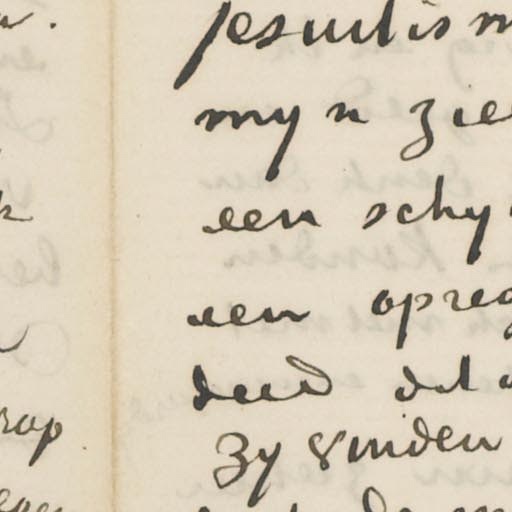 jesuitism
myn zie
een schy
een opreg
deed dit
Zy vinden
rop